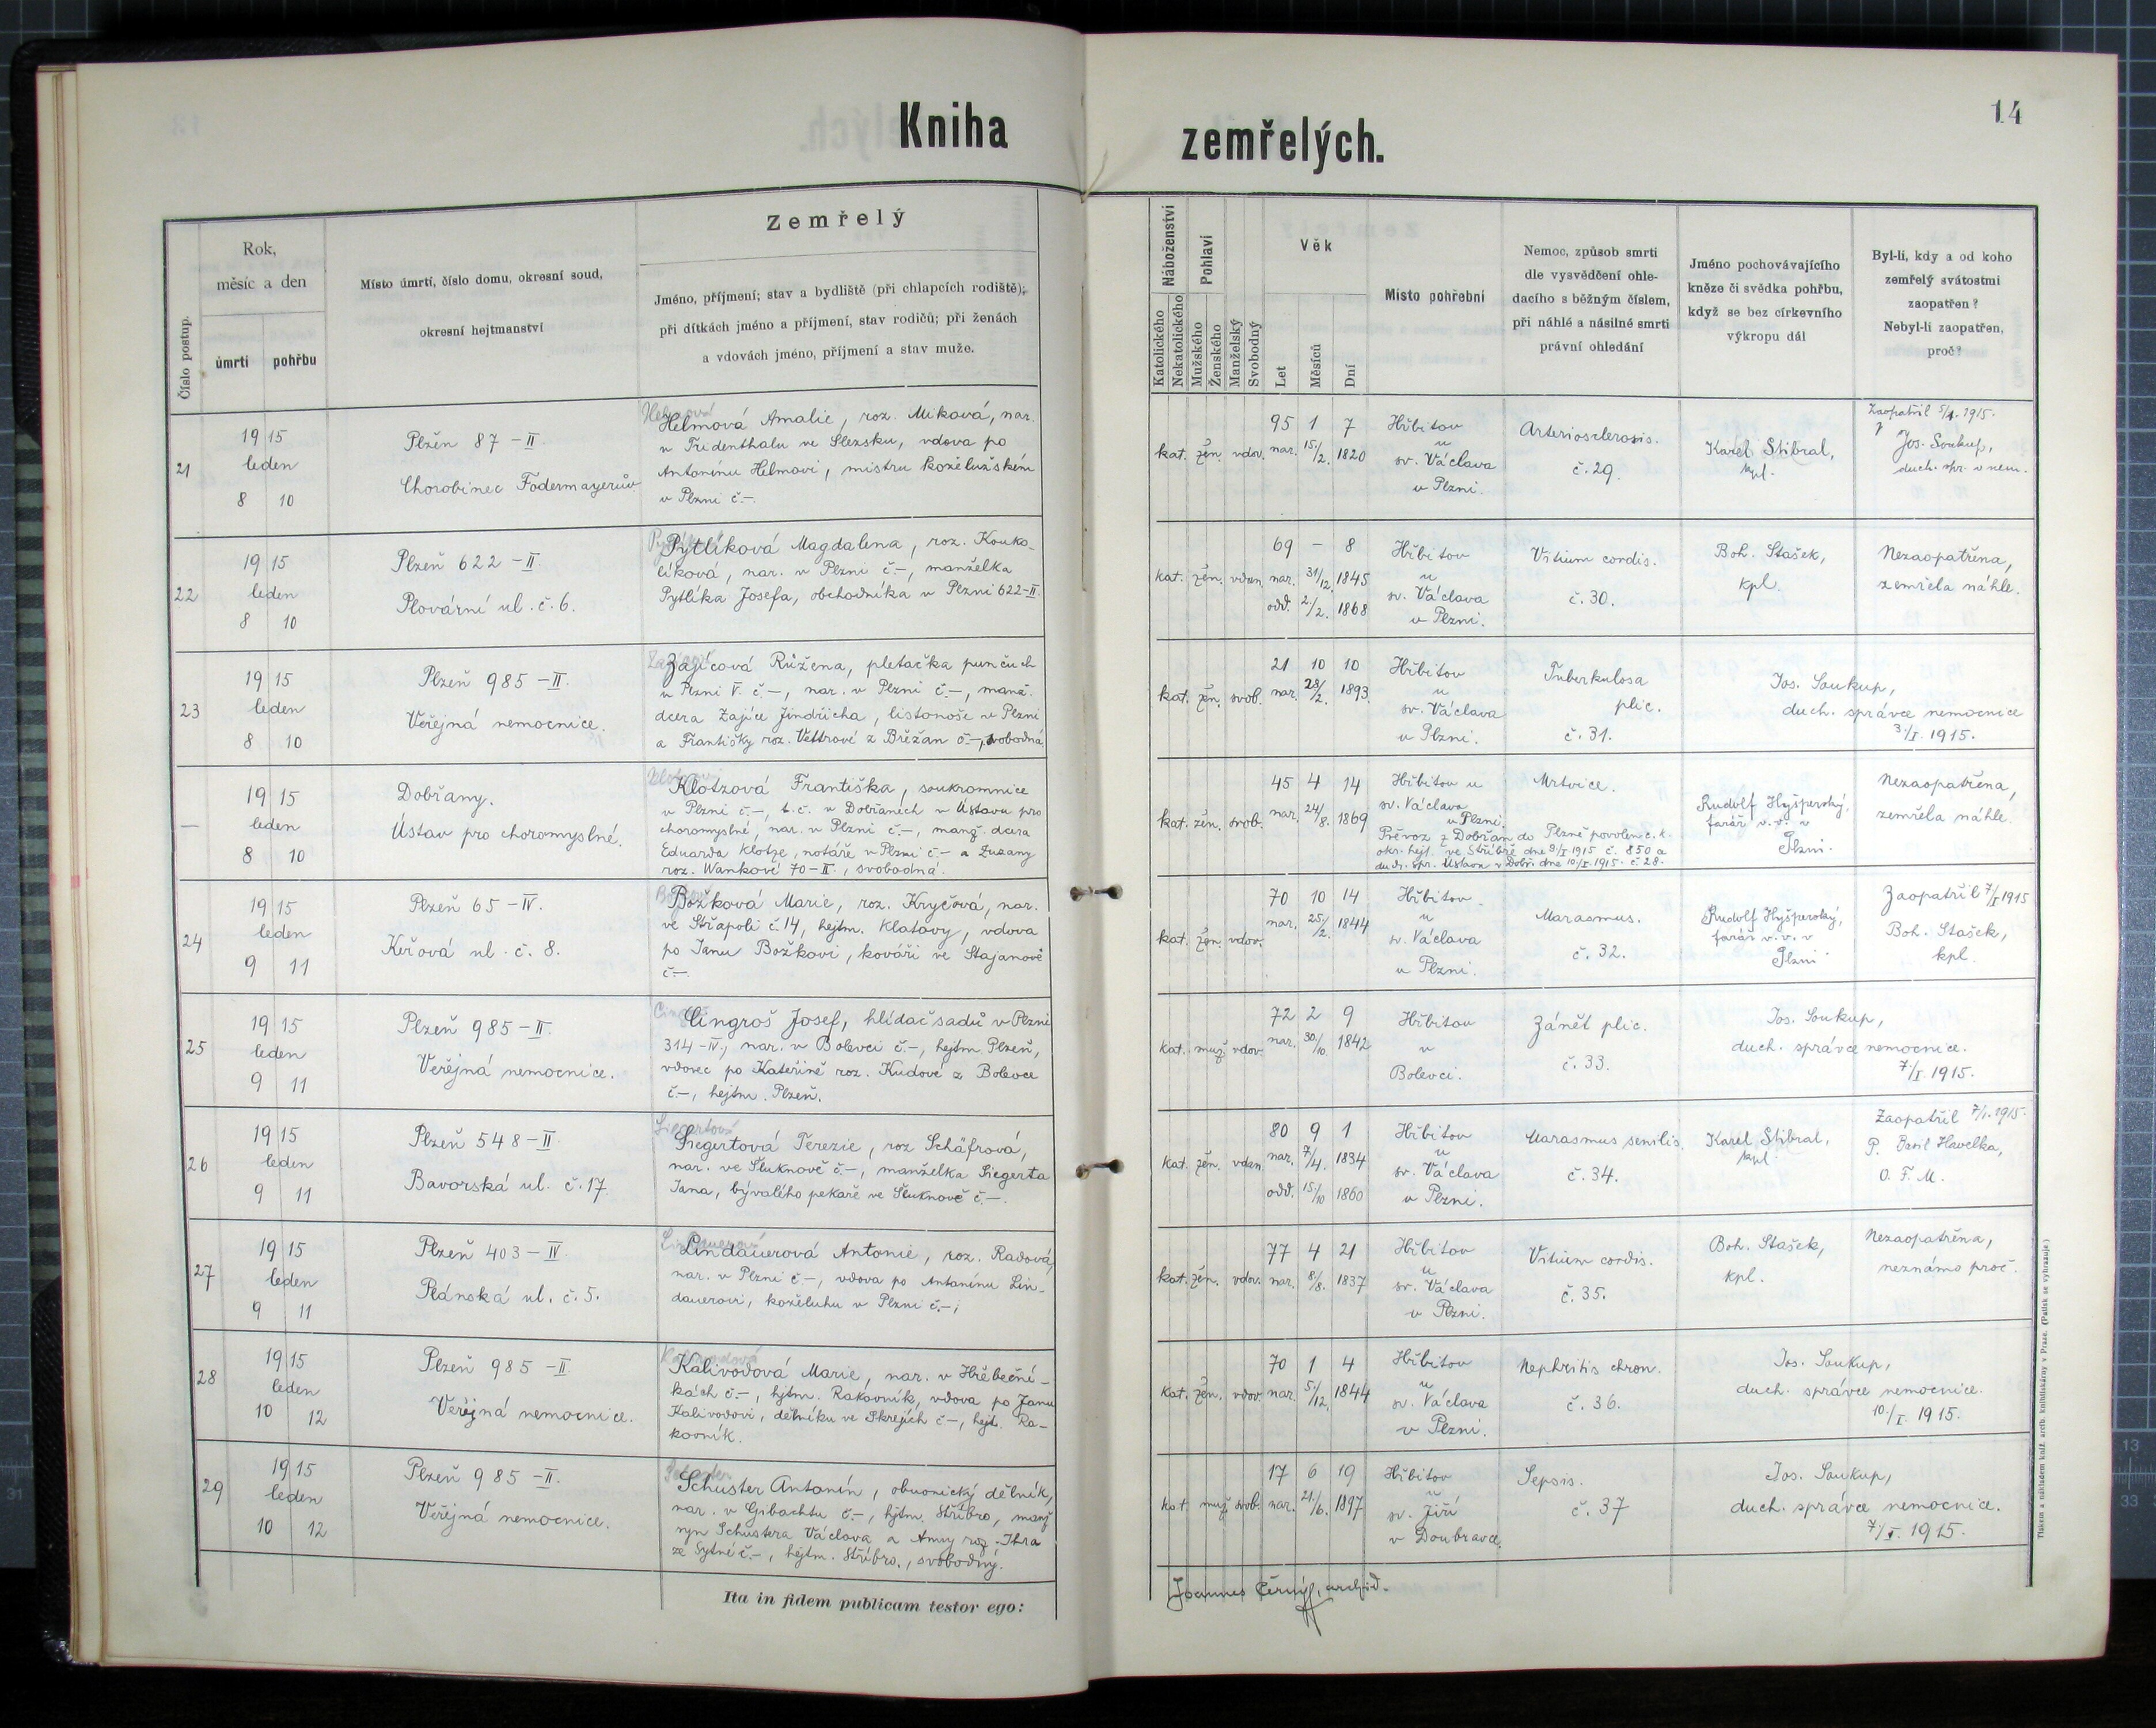 Kniha
zemřelých.
14
Číslo postup.
Rok,
měsíc a den
úmrtí
pohřbu
Místo úmrtí, číslo domu, okresní soud,
okresní hejtmanství
Zemřelý
Jméno, příjmení; stav a bydliště (při chlapcích rodiště);
při dítkách jméno a příjmení, stav rodičů; při ženách
a vdovách jméno, příjmení a stav muže.
Náboženství
Katolického
Nekatolického
Pohlaví
Mužského
Ženského
Manželský
Svobodný
Věk
Let
Měsíců
Dní
Místo pohřební
Nemoc, způsob smrti
dle vysvědčení ohle-
dacího s běžným číslem,
při náhlé a násilné smrti
právní ohledání
Jméno pochovávajícího
kněze či svědka pohřbu,
když se bez církevního
výkropu dál
Byl-li, kdy a od koho
zemřelý svátostmi
zaopatřen?
Nebyl-li zaopatřen,
proč?
21
1915
leden
8 10
Plzeň 87-II
Chorobinec Fodermayerův
Helmová Amalie, roz. Miková, nar.
v Fridenthalu ve Slezsku, vdova po
Antonínu Helmovi, mistru koželužském
v Plzni č.-
kat. žen. vdov.
95 1 7
nar. 15./2. 1820
Hřbitov
u
sv. Václava
v Plzni.
Arteriosclerosis.
č. 29.
Karel Stibral,
kpl.
Zaopatřil 5/1. 1915.
Jos. Soukup,
duch. spr. v nem.
22
1915
leden
8 10
Plzeň 622-II
Plovární ul. č. 6.
Pytlíková Magdalena, roz. Kouko-
líková, nar. v Plzni č.-, manželka
Pytlíka Josefa, obchodníka v Plzni 622-II.
kat. žen. vdan.
69 - 8
nar. 31/12. 1845
odd. 2./2. 1868
Hřbitov
u
sv. Václava
v Plzni.
Vitium cordis.
č. 30.
Boh. Stašek,
kpl.
Nezaopatřena,
zemřela náhle.
23
1915
leden
8 10
Plzeň 985-II.
Veřejná nemocnice.
Zajícová Růžena, pletačka punčuch
v Plzni V. č.-, nar. v Plzni č.-, manž.
dcera Zajíce Jindřicha, listonoše v Plzni
a Františky roz. Vettrové z Břežan č.-, svobodná
kat. žen. svob.
21 10 10
nar. 28/2. 1893.
Hřbitov
u
sv. Václava
v Plzni.
Tuberkulosa
plic.
č. 31.
Jos. Soukup,
duch. správce nemocnice
3./I. 1915.
-
1915
leden
8 10
Dobřany.
Ústav pro choromyslné.
Klotzová Františka, soukromnice
v Plzni č.-, t.č. v Dobřanech v Ústavu pro
choromyslné, nar. v Plzni č.-, manž. dcera
Eduarda Klotze, notáře v Plzni č.- a Zuzany
roz. Wankové 70-II., svobodná.
kat. žen. svob.
45 4 14
nar. 24/8. 1869
Hřbitov u
sv. Václava
v Plzni.
Převoz z Dobřan do Plzně povolen c. k.
okr. hejt. ve Stříbře dne 9/I 1915 č. 850 a
duch. spr. Ústavu v Dobř. dne 10/I. 1915. č. 28.
Mrtvice.
Rudolf Hyšperský,
farář v.v. v
Plzni.
Nezaopatřena,
zemřela náhle.
24
1915
leden
9 11
Plzeň 65-IV.
Keřová ul. č. 8.
Božková Marie, roz. Kryčová, nar.
ve Střapoli č. 14, hejtm. Klatovy, vdova
po Janu Božkovi, kováři ve Stajanově
č.-.
kat. žen. vdov.
70 10 14
nar. 25/2. 1844
Hřbitov
u
sv. Václava
v Plzni.
Marasmus.
č. 32.
Rudolf Hyšperský,
farář v.v. v
Plzni
Zaopatřil 7/I 1915
Boh. Stašek,
kpl.
25
1915
leden
9 11
Plzeň 985-II.
Veřejná nemocnice.
Cingroš Josef, hlídač sadů v Plzni
314-IV., nar. v Bolevci č.-, hejtm. Plzeň,
vdovec po Kateřině roz. Kudové z Bolevce
č.-, hejtm. Plzeň.
kat. muž. vdov.
72 2 9
nar. 30./10. 1842
Hřbitov
v
Bolevci.
Zánět plic.
č. 33.
Jos. Soukup,
duch. správce nemocnice.
7./I. 1915.
26
1915
leden
9 11
Plzeň 548-II
Bavorská ul. č. 17
Siegertová Terezie, roz Schäfrová,
nar. ve Šluknově č.-, manželka Siegerta
Jana, bývalého pekaře ve Šluknově č.-.
kat. žen. vdan.
80 9 1
nar. 7/4. 1834
odd. 15./10 1860
Hřbitov
u
sv. Václava
v Plzni.
Marasmus senilis.
č. 34.
Karel Stibral,
kpl.
Zaopatřil 7/1. 1915.
P. Havelka,
O. F. M.
27
1915
leden
9 11
Plzeň 403-IV
Plánská ul. č. 5.
Lindauerová Antonie, roz. Radová,
nar. v Plzni č.-, vdova po Antonínu Lin-
dauerovi, koželuhu v Plzni č.-;
kat. žen. vdov.
77 4 21
nar. 8./8. 1837
Hřbitov
u
sv. Václava
v Plzni.
Vitium cordis.
č. 35.
Boh. Stašek,
kpl.
Nezaopatřena,
neznámo proč.
28
1915
leden
10 12
Plzeň 985-II
Veřejná nemocnice.
Kalivodová Marie, nar. v Hřebeční-
kách č.-, hjtm. Rakovník, vdova po Janu
Kalivodovi, dělníku ve Skrejích č.-, hejt. Ra-
kovník.
kat. žen. vdov.
70 1 4
nar. 5./12. 1844
Hřbitov
u
sv. Václava
v Plzni.
Nephritis chron.
č. 36.
Jos. Soukup,
duch. správce nemocnice.
10./I. 1915.
29
1915
leden
10 12
Plzeň 985-II.
Veřejná nemocnice.
Schuster Antonín, obuvnický dělník,
nar. v Gibachtu č.-, hjtm. Stříbro, manž
syn Schustera Václava a Anny roz. Ihra
ze Sytné č.-, hejtm. Stříbro., svobodný.
kat. muž. svob.
17 6 19
nar. 21./6. 1897
Hřbitov
u
sv. Jiří
v Doubravce.
Sepsis.
č. 37
Jos. Soukup,
duch. správce nemocnice.
7./I. 1915.
Ita in fidem publicam testor ego:
Joannes Černý, archid.
Tiskem a nákladem kníž. arcib. knihtiskárny v Praze. (Patisk se vyhrazuje.)